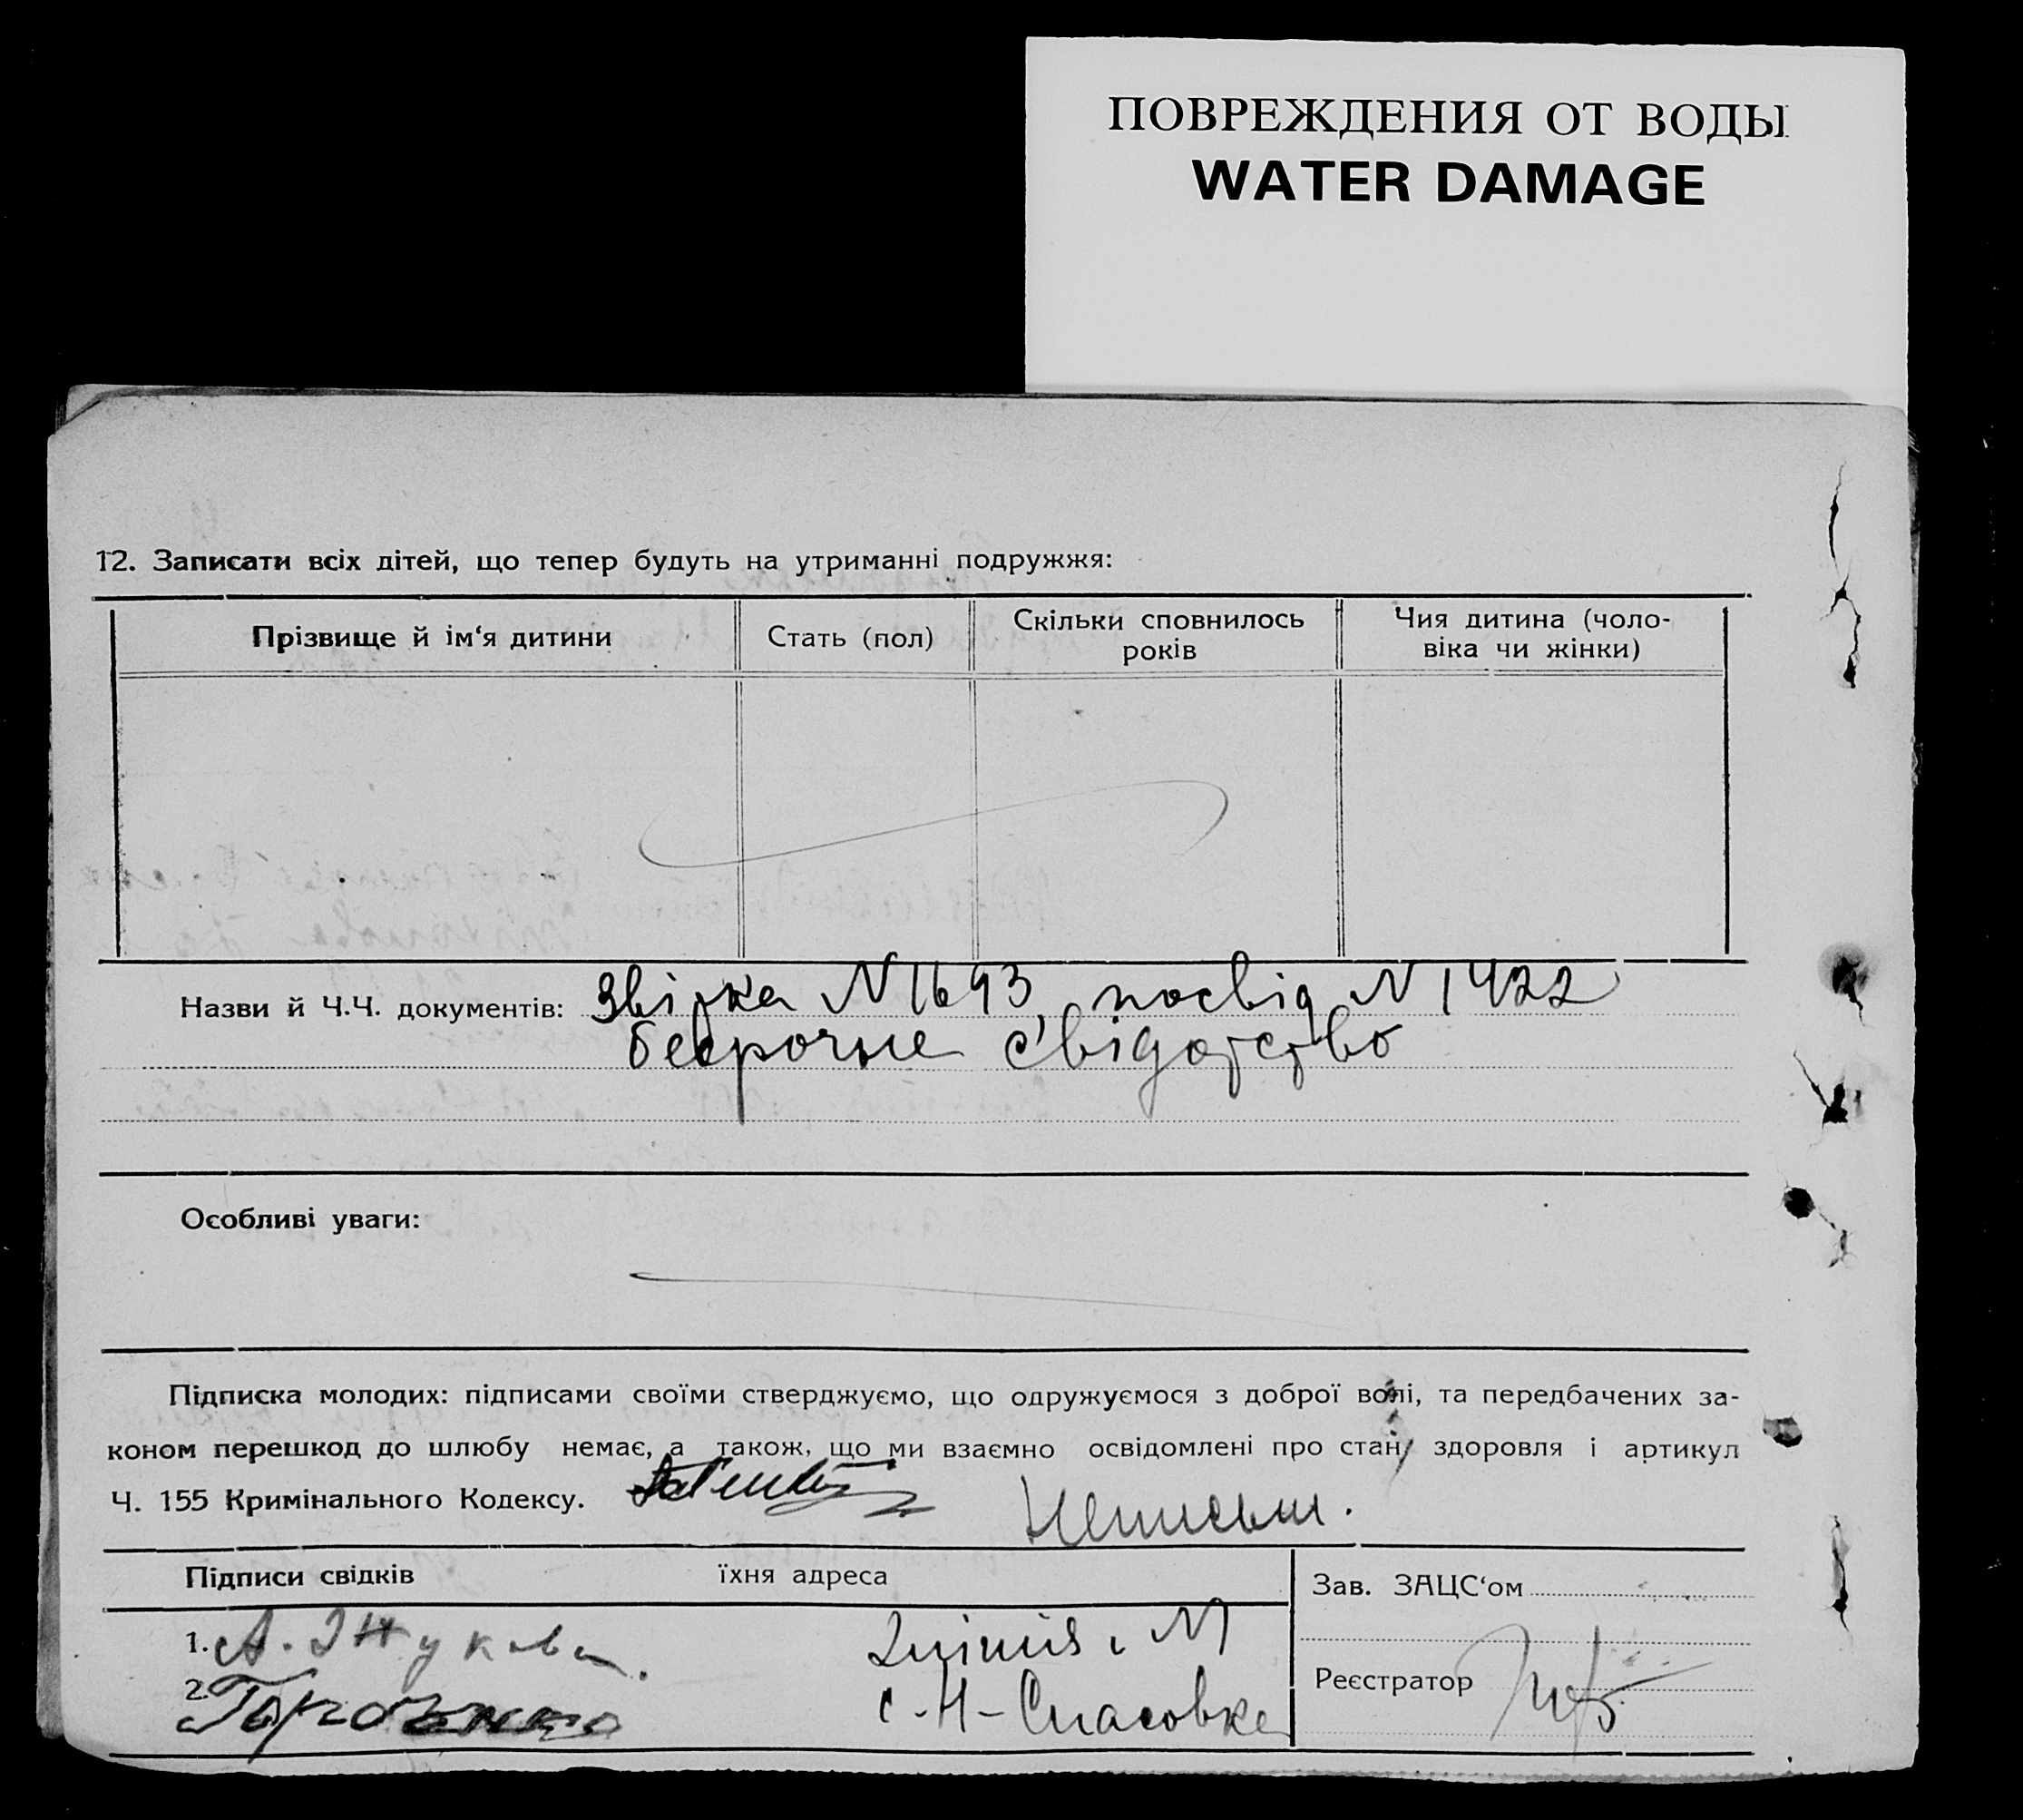 ПОВРЕЖДЕНИЯ ОТ ВОДЫ
WATER DAMAGE
12. Записати всіх дітей, що тепер будуть на утриманні подружжя:
Прізвище й ім‘я дитини
Стать (пол)
Скільки сповнилось
років
Чия дитина (чоло-
віка чи жінки)
Назви й Ч.Ч. документів: Звірка N 1693, посвід N 1422
бесрочне свідотство
Особливі уваги:
Підписка молодих: підписами своїми стверджуємо, що одружуємося з доброї волі, та передбачених за-
коном перешкод до шлюбу немає, а також, що ми взаємно освідомлені про стан здоровля і артикул
Ч. 155 Кримінального Кодексу. Неписьм.
Підписи свідків їхня адреса
1. А. Жукова
2.
с. Н-Спасовка
Зав. ЗАЦС‘ом
Реєстратор